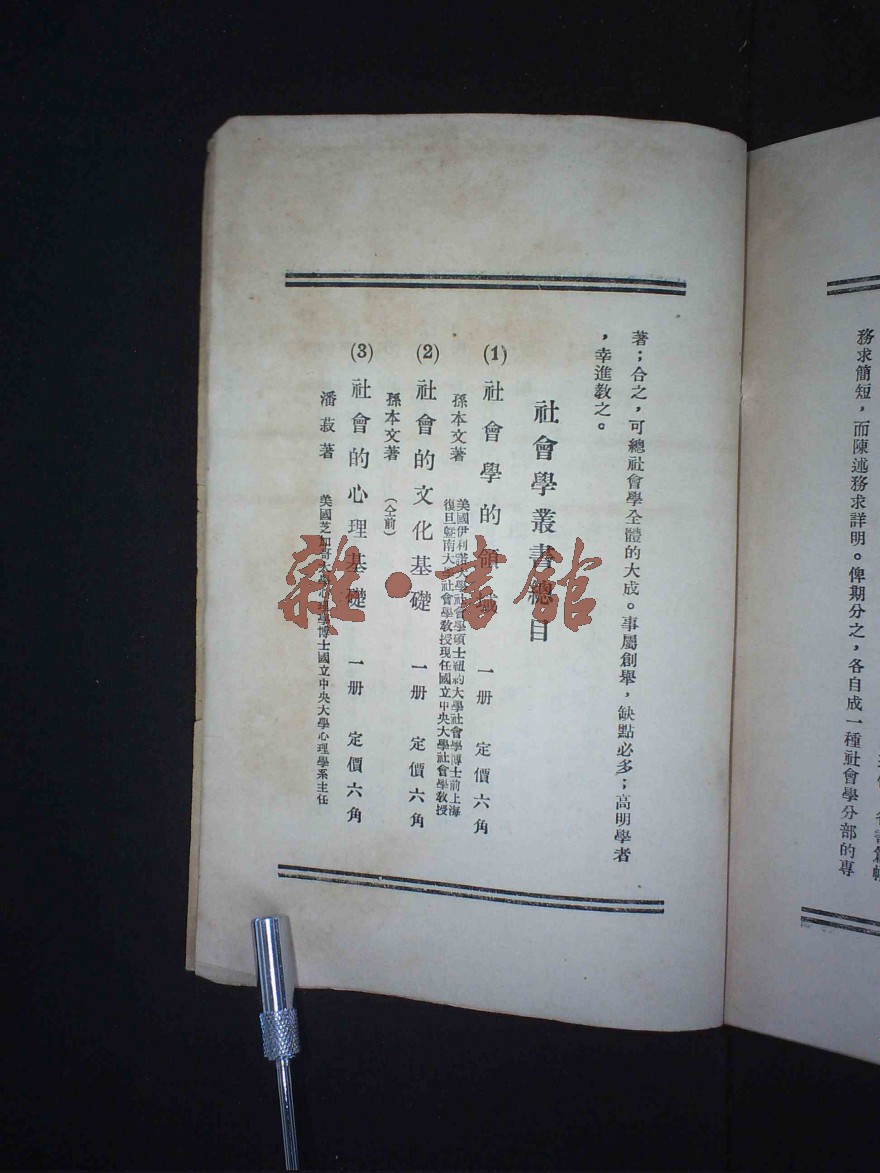 務求簡短，而陳述務求詳明。俾期分之，各自成一種社會學分部的專
著；合之，可總社會學全體的大成。事屬創舉，缺點必多；高明學者
，幸進教之。
社會學叢書總目
(1) 社會學的領域 一册 定價六角
孫本文著 美國伊利諾大學社會學碩士紐約大學社會學博士前上海
復旦曁南大學社會學教授現任國立中央大學社會學教授
(2) 社會的文化基礎 一册 定價六角
孫本文著 (仝前)
(3) 社會的心理基礎 一册 定價六角
潘菽著 美國芝加哥大學心理學博士國立中央大學心理學系主任
雜·書館